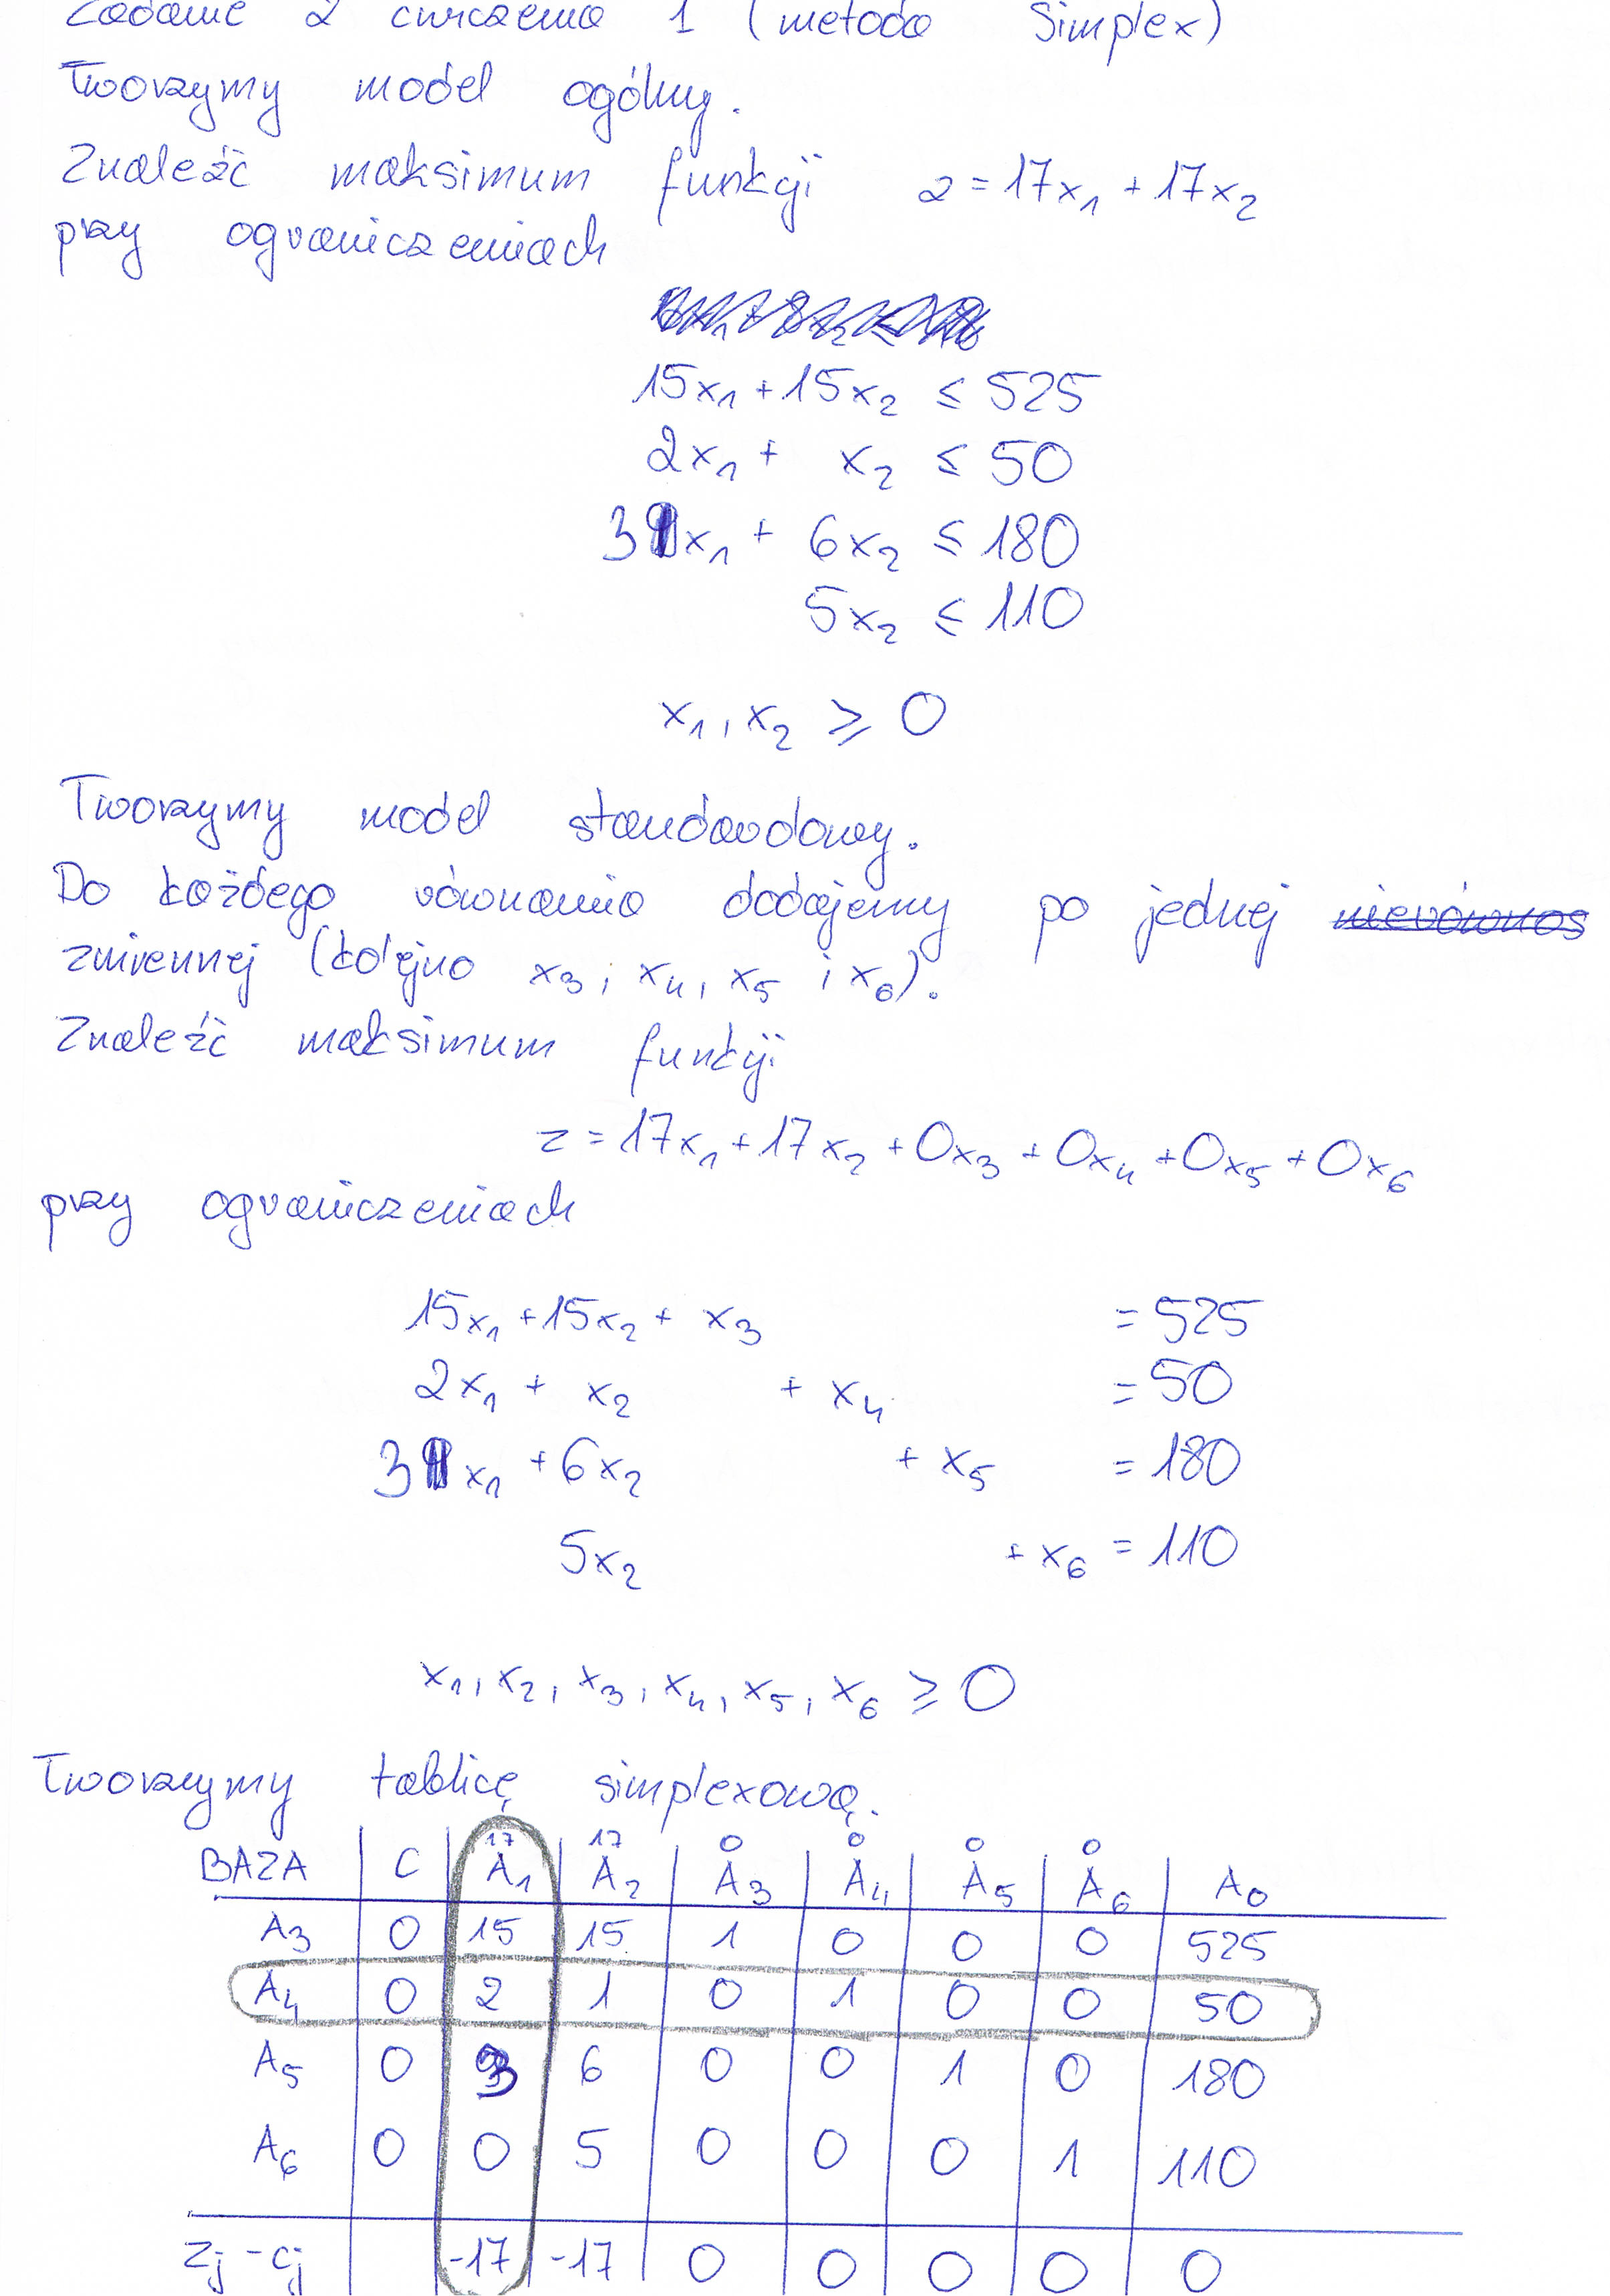 Zadanie 2 ćwiczenia 1 (metoda Simplex)
Tworzymy model ogólny.
Znaleźć maksimum funkcji z = 17x₁ + 17x₂
przy ograniczeniach
15x₁ + 15x₂ ≤ 525
2x₁ + x₂ ≤ 50
3x₁ + 6x₂ ≤ 180
5x₂ ≤ 110
x₁, x₂ ≥ 0
Tworzymy model standardowy.
Do każdego równania dodajemy po jednej nierównoś
zmiennej (kolejno x₃, x₄, x₅ i x₆).
Znaleźć maksimum funkcji
z = 17x₁ + 17x₂ + 0x₃ + 0x₄ + 0x₅ + 0x₆
przy ograniczeniach
15x₁ + 15x₂ + x₃ = 525
2x₁ + x₂ + x₄ = 50
3x₁ + 6x₂ + x₅ = 180
5x₂ + x₆ = 110
x₁, x₂, x₃, x₄, x₅, x₆ ≥ 0
Tworzymy tablicę simplexową.
17 17 0 0 0 0
BAZA C A₁ A₂ A₃ A₄ A₅ A₆ A₀
A₃ 0 15 15 1 0 0 0 525
A₄ 0 2 1 0 1 0 0 50
A₅ 0 3 6 0 0 1 0 180
A₆ 0 0 5 0 0 0 1 110
zj - cj -17 -17 0 0 0 0 0